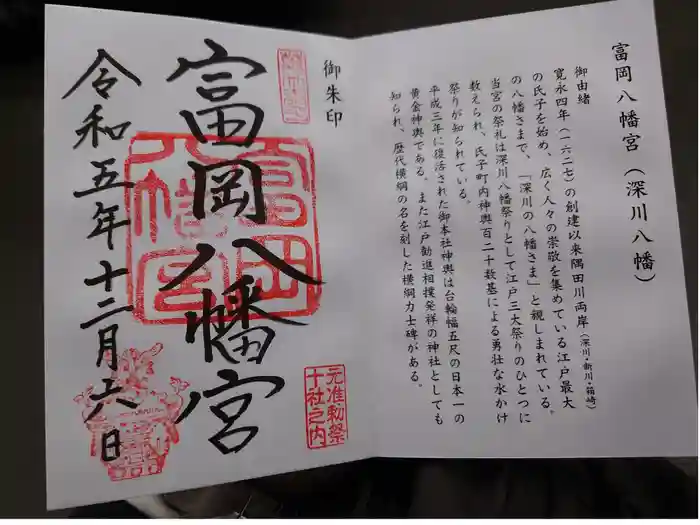 富岡八幡宮(深川八幡)
御由緒
寛永四年(一六二七)の創建以来隅田川両岸(深川・新川・箱崎)
の氏子を始め、広く人々の崇敬を集めている江戸最大
の八幡さまで、「深川の八幡さま」と親しまれている。
当宮の祭礼は深川八幡祭りとして江戸三大祭りのひとつに
数えられ、氏子町内神輿百二十数基による勇壮な水かけ
祭りが知られている。
平成三年に復活された御本社神輿は台輪幅五尺の日本一の
黄金神輿である。また江戸勧進相撲発祥の神社としても
知られ、歴代横綱の名を刻した横綱力士碑がある。
御朱印
元准勅祭
十社之内
富岡八幡宮
富岡
八幡宮
令和五年十二月六日